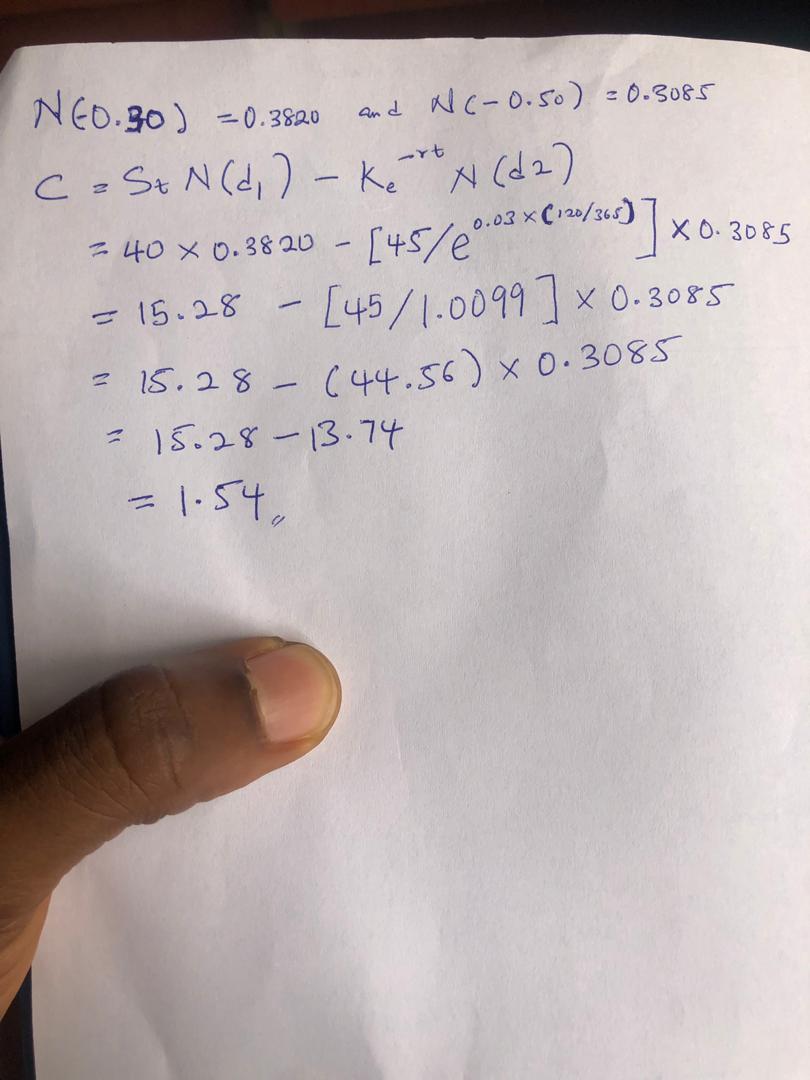 N(-0.30) = 0.3820 and N(-0.50) = 0.3085
C = St N(d1) - Ke^-rt N(d2)
= 40 × 0.3820 - [45/e^0.03×(120/365)] × 0.3085
= 15.28 - [45/1.0099] × 0.3085
= 15.28 - (44.56) × 0.3085
= 15.28 - 13.74
= 1.54